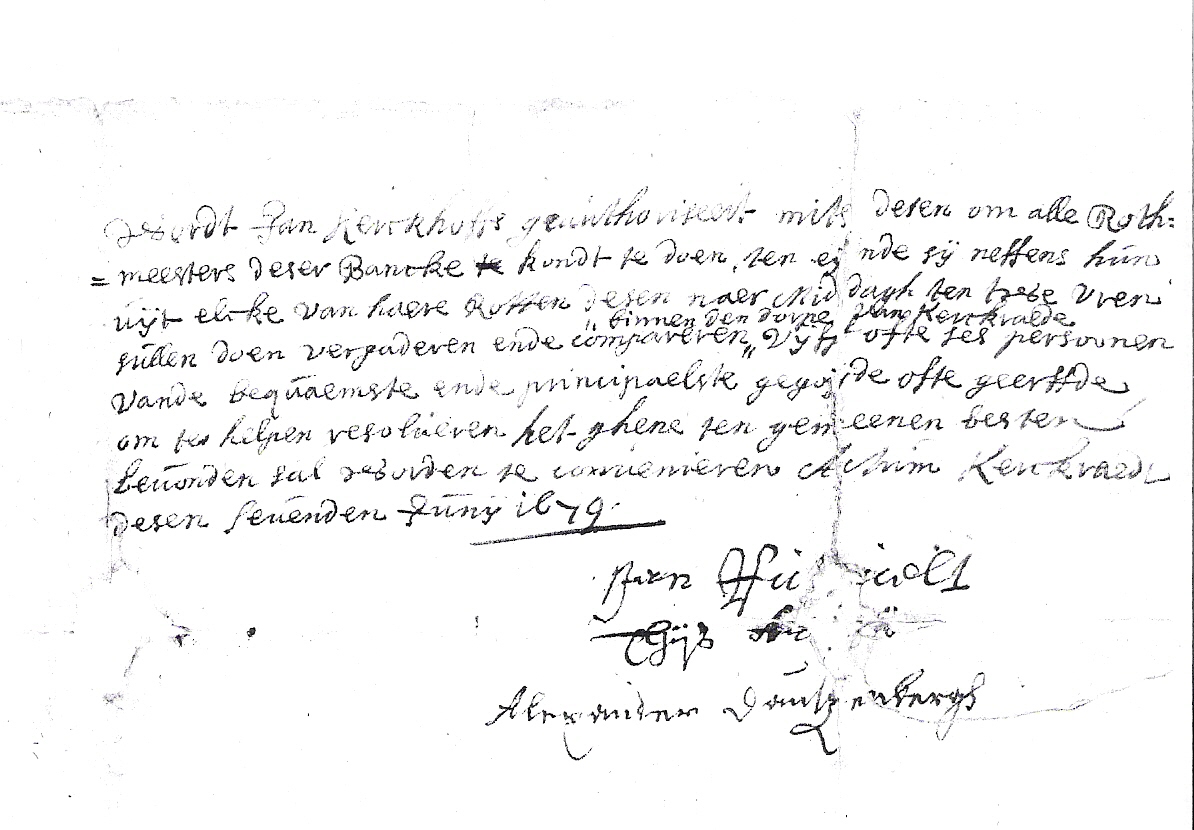 Wordt Jan Kerckhoffs geauthoriseert mits desen om alle Roth=
=meesters deser Bancke te kondt te doen, ten eynde sij neffens hun
uijt elcke van haere Rotten desen naer Mid dagh ten twee vren
"binnen den dorpe van Kerckraede
sullen doen vergaderen ende compareren" vijff ofte ses persoonen
vande bequaemste ende principaelste gegoyde ofte geerffde
om te helpen resolueren het ghene ten gemeenen besten
beuonden sal worden te convenieren Actum Kerckraede
desen seuenden Junij 1679.
Jan
Thijs
Alexander Dautzenbergh